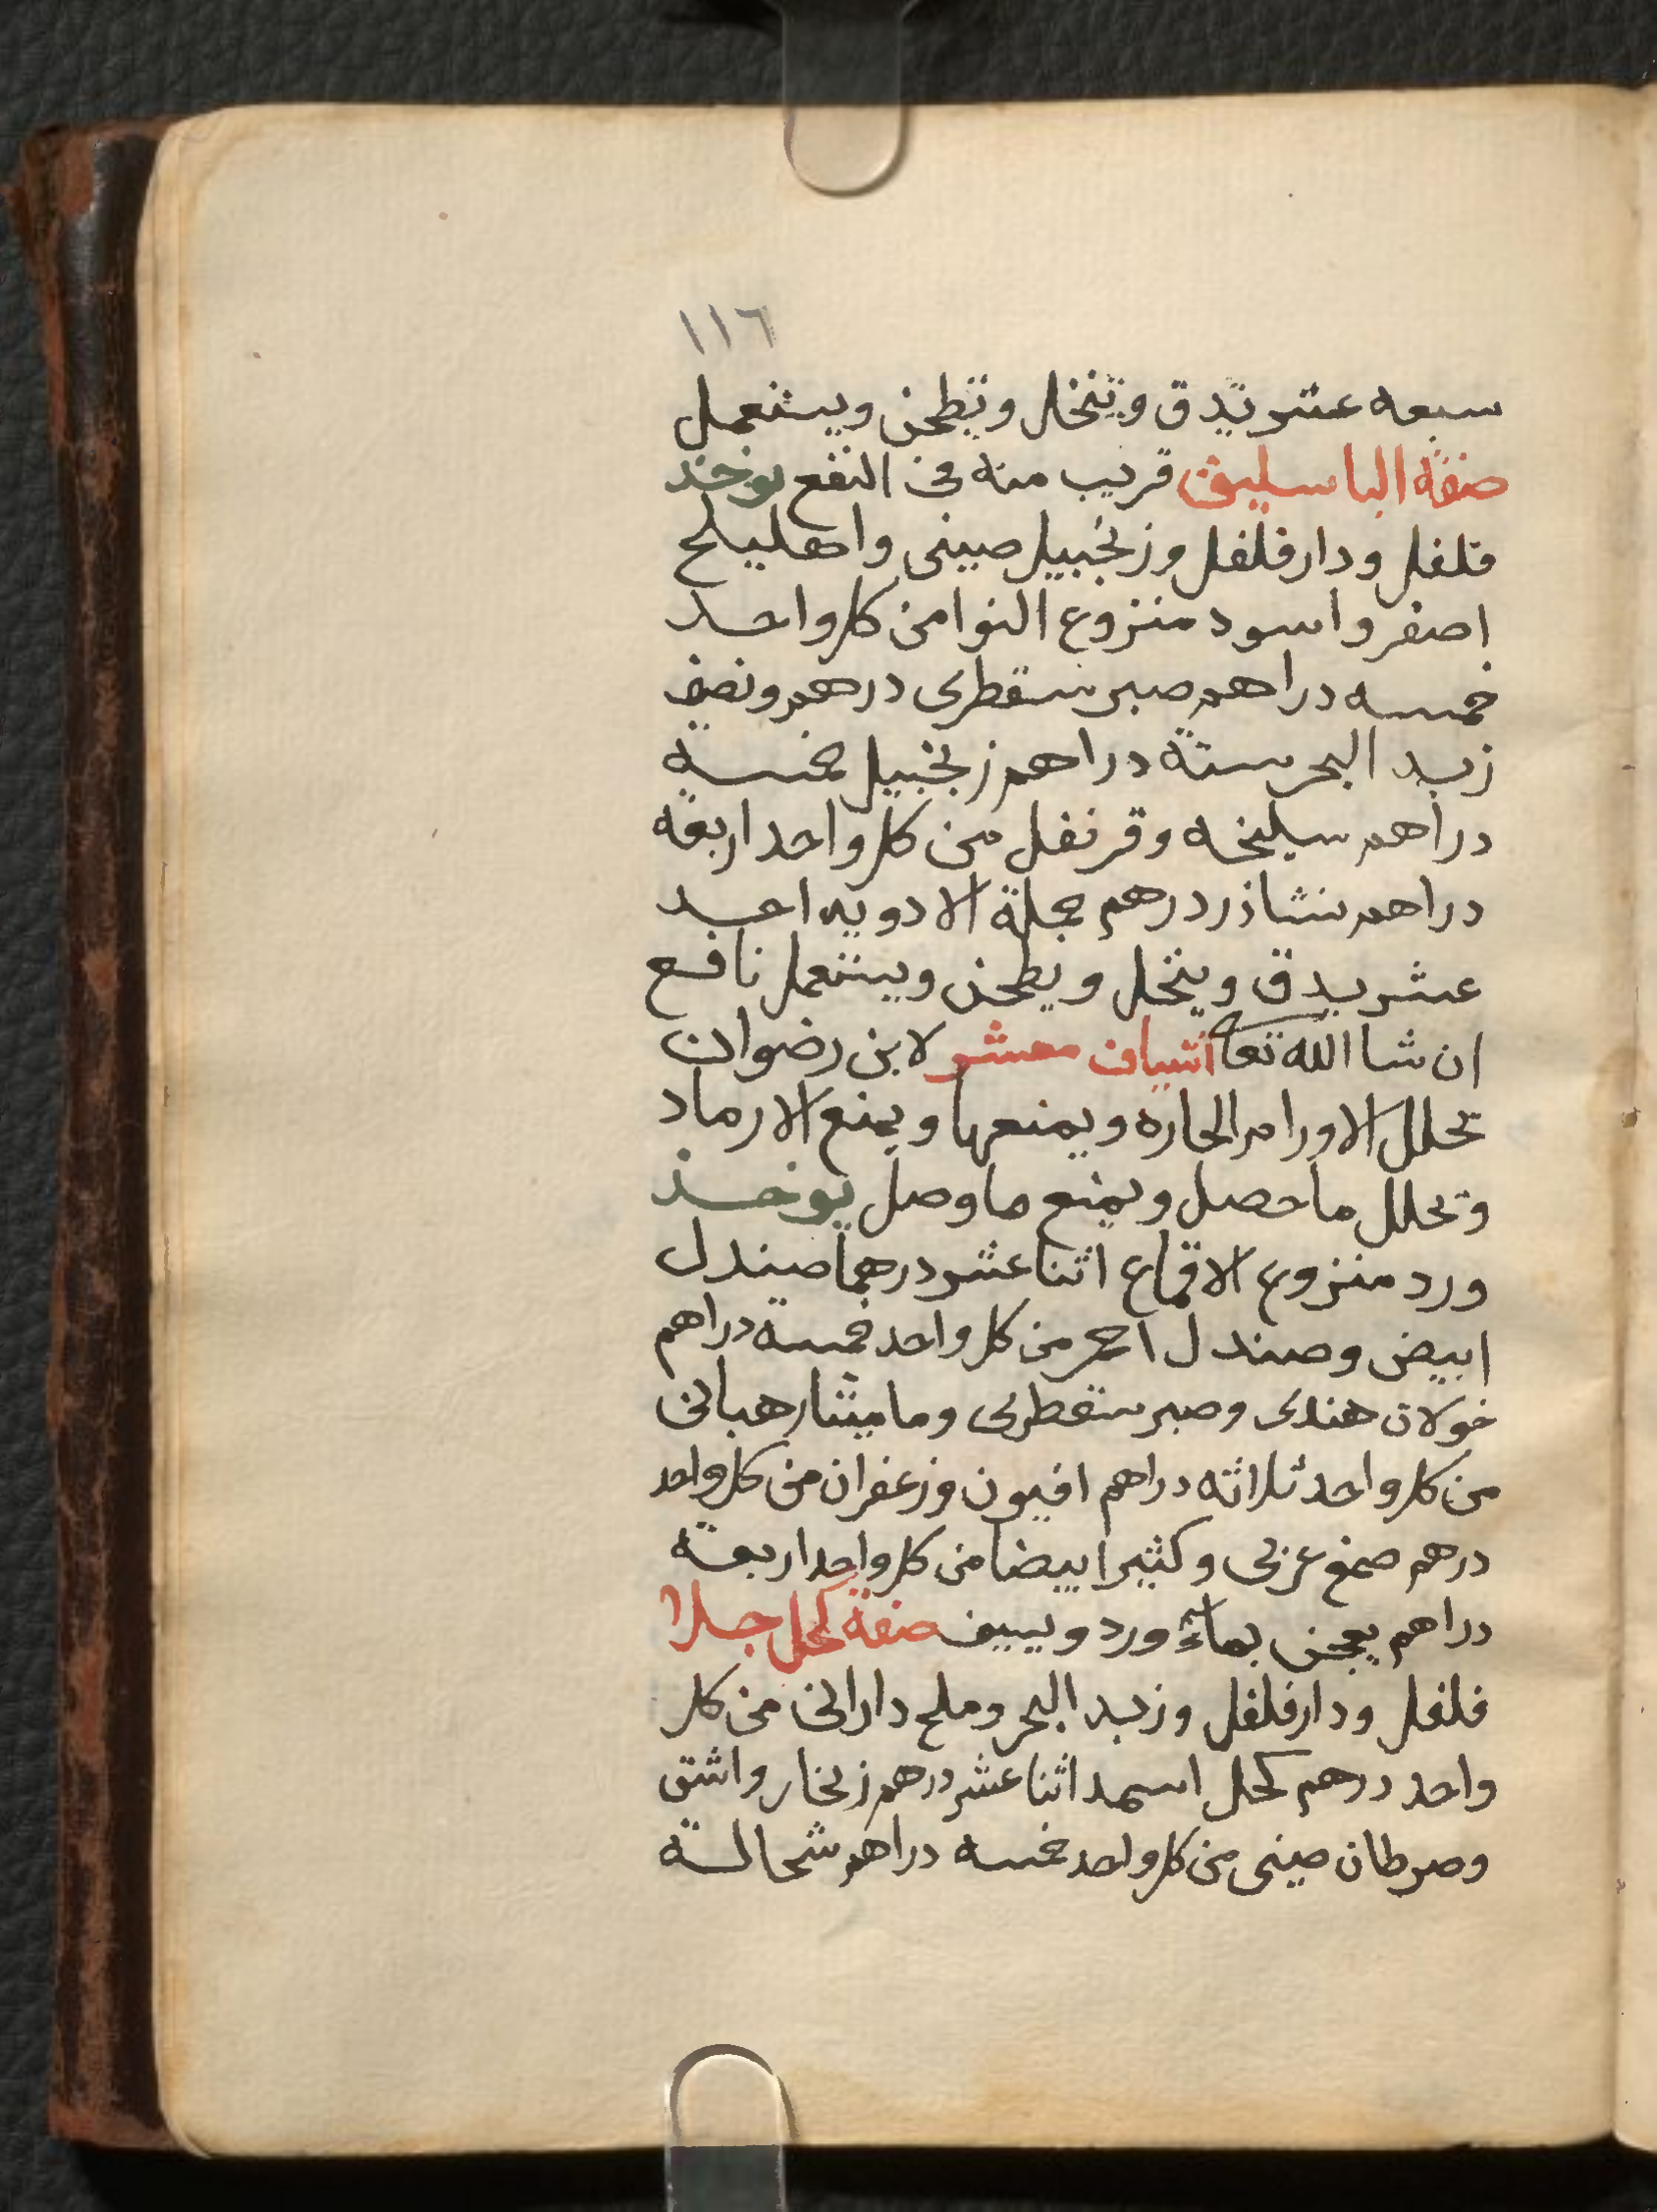 ١١٦
سبعه عشر تدق وتنخل وتطحن ويستعمل
صفة الباسليق قريب منه فى النفع يوخذ
فلفل ودارفلفل وزنجبيل صينى واهليلج
اصفر واسود منزوع النوا من كل واحد
خمسه دراهم صبر سقطرى درهم ونصف
زبد البحر ستة دراهم زنجبيل خمسة
دراهم سليخه وقرنفل من كل واحد اربعة
دراهم نشاذر درهم جملة الادويه احد
عشر يدق وينخل ويطحن ويستعمل نافع
ان شا الله تعا اشياف معشر لابن رضوان
تحلل الاورام الحاره ويمنعها ويمنع الارماد
وتحلل ما حصل ويمنع ما وصل يوخذ
ورد منزوع الاقماع اثنا عشر درهما صندل
ابيض وصندل احمر من كل واحد خمسة دراهم
خولان هندى وصبر سقطرى وماميثا رهبانى
من كل واحد ثلاثه دراهم افيون وزعفران من كل واحد
درهم صمغ عربى وكثيرا بيضا من كل واحد اربعة
دراهم يعجن بماء ورد ويييف صفة كحل جلا
فلفل ودارفلفل وزبد البحر وملح دارانى من كل
واحد درهم كحل اسمد اثنا عشر درهم زنجار واشق
وصرطان صينى من كل واحد خمسه دراهم شحالة